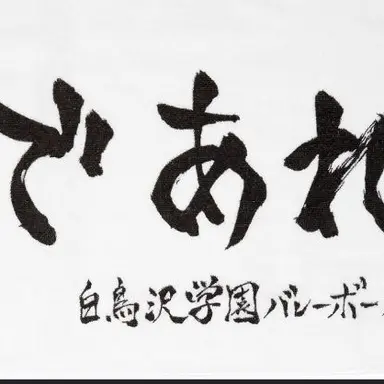 であれ
白鳥沢学園バレーボー